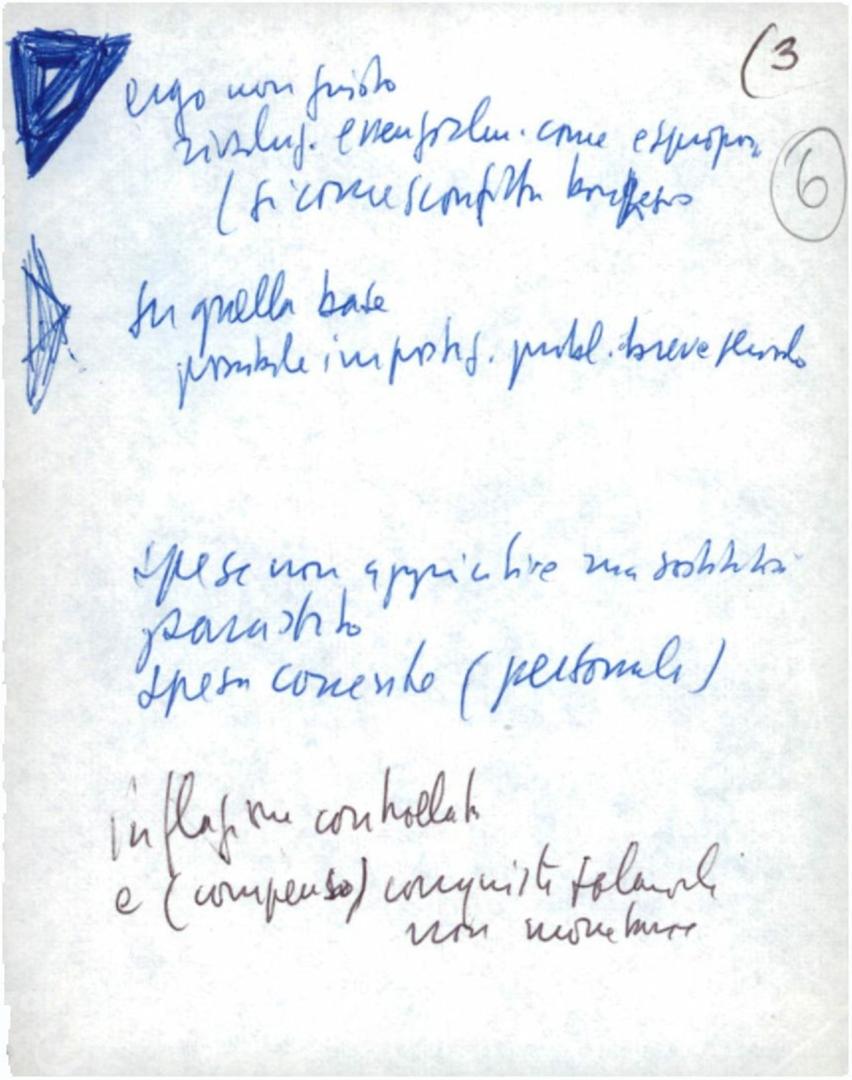 (3
6
ergo non giusto
rivoluz. essenzialm. come espropri
(sì come sconfitta borghese
su quella base
possibile impostaz. probl. breve periodo
spese non aggiuntive ma sostitutive
parassito
spesa corrente (personale)
inflazione controllata
e (compenso) conquiste salariali
non monetarie